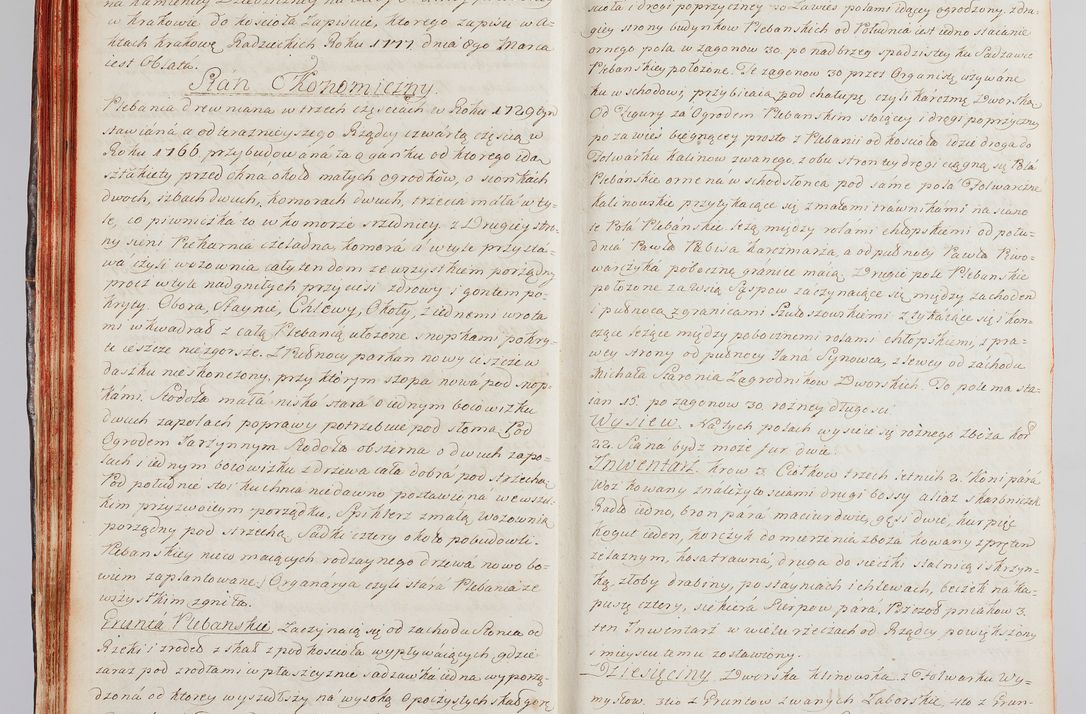 w krakowie do kościoła zapisuie, ktorego zapisu w A-
ktach krakows. Radzieckich Roku 1777 dnia 8go Marca
iest Oblata.
Stan Ekonomiczny.
Plebania drewniana w trzech częsciach w Roku 1729tym
stawiana a od teraznieyszego Rządcy czwartą częscią w
Roku 1766 przybudowana za ganku od ktorego idą
sztakiety przed okna około małych ogrodkow, o sionkach
dwoch, izbach dwuch, komorach dwuch, trzecia mała w ty-
le, co piwniczka to w komorze srzedniey. z Drugiey stro-
ny sieni Piekarnia czeladna, komora a w tyle przysta-
wa czyli wozownia cały ten dom ze wszystkiem porządny
procz w tyle nadgnełych przyciesi zdrowy i gontem po-
kryty. Obora, Staynie, Chlewy, Okoły, z iednemi wrota
mi w kwadrat z całą Plebanią ułożone snopkami pokry-
te ieszcze niezgorsze. z Pułnocy parkan nowy ieszcze w
daszku nieskonczony, przy ktorym szopa nowa pod snop-
kami. Stodoła mała niska stara o iednym boiowizku
dwuch zapolach poprawy potrzebuie pod słomą. Pod
Ogrodem Jarzynnym Stodoła obszerna o dwuch zapo-
lach i iednym boiowizku z drzewa cała dobra pod strzechą
Pod południe stoi kuchnia niedawno postawiona we wszel-
kim przyzwoitym porządku. Spichlerz z małą Wozownią
porządny pod strzechą. Sadki cztery około pobudowli.
Plebanskiey nieco maiących rodzaynego drzewa nowo bo-
wiem zaplantowane. Organarya czyli stara Plebania ze
wszystkim zgniła.
Grunta Plebanskie. Zaczynaią się od zachodu Słonca od
Rzeki i zrodeł z skał z pod kościoła wypływaiących, gdzie
zaraz pod zrodłami w płaszczyznie sadzawka iedna wyporzą-
dzona od ktorey wyszedłszy na wysoką opoczystych skał gorę
ciioła i drogi poprzyczney do Zawies polami idącey ogrodzony. z dru-
giey strony budynkow Plebanskich od Południa iest iedno staianie
ornego pola w zagonow 30. po nad brzeg spadzisty ku Sadzawce
Plebanskiey położone. Te zagonow 30 przez Organistę używane
ku wschodowi przybieraią pod chałupę czyli karczmę Dworską
Od Figury za Ogrodem Plebanskim stoiącey i drogi poprzyczney
po za wieś biegnącey prosto z Plebanii od kościoła idzie droga do
Folwarku kalinow zwanego. z obu stron tey drogi ciągną się Pola
Plebanskie orne na wschod słonca pod same pola Folwarczne
kalinowskie przytykaiące się z małemi trawnikami na siano
te Pola Plebanskie leżą między rolami chłopskiemi od połu-
dnia Pawła Pabisa karczmarza, a od pułnoty Pawła Piwo-
warczyka poboczne granice maią. Drugie pole Plebanskie
położone za wsią Sąspow zaczynaiące się między zachodem
i pułnocą z granicami Szułoszowskiemi z tykaiące się i kon-
czące leżące między pobocznemi rolami chłopskiemi, z pra-
wey strony od pułnocy Jana Synowca, z lewey od zachodu
Michała Saronia Zagrodnikow Dworskich. To pole ma sta-
ian 15. po zagonow 30. rożney długości
Wysiew. Na tych polach wysieie się rożnego zboża kor.
22. Siana bydz może fur dwie.
Inwentarz. krow 3. Ciołkow trzech letnich 2. koni para
Woz kowany z należytościami drugi bossy aliaz skarbniczek
Radło iedno, bron para maciur dwie, gęsi dwie, kur pięć
kogut ieden, korczyk do mierzenia zboża kowany z prętem
żelaznym, kosa trawna, druga do sieczki z talnicą i skrzyn-
ką. żłoby drabiny, po stayniach i chlewach, beczek na ka-
pustę cztery, siekiera Sierpow para, Pszczoł pniakow 3.
ten Inwentarz w wielu rzeczach od Rządcy powiększony
s mieyscu temu zostawiony.
Dziesięciny. Dworska klinowska z Folwarku Wy-
mysłow. 3tio z Gruntow zwanych Zaborskie, 4to z Grun-